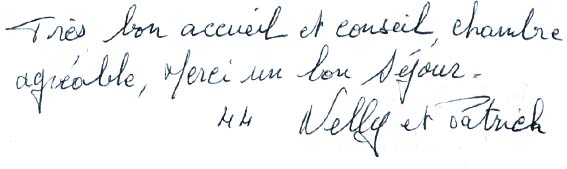 Très bon accueil et conseil, chambre
agréable, Merci un bon Séjour.
44 Nelly et Patrick